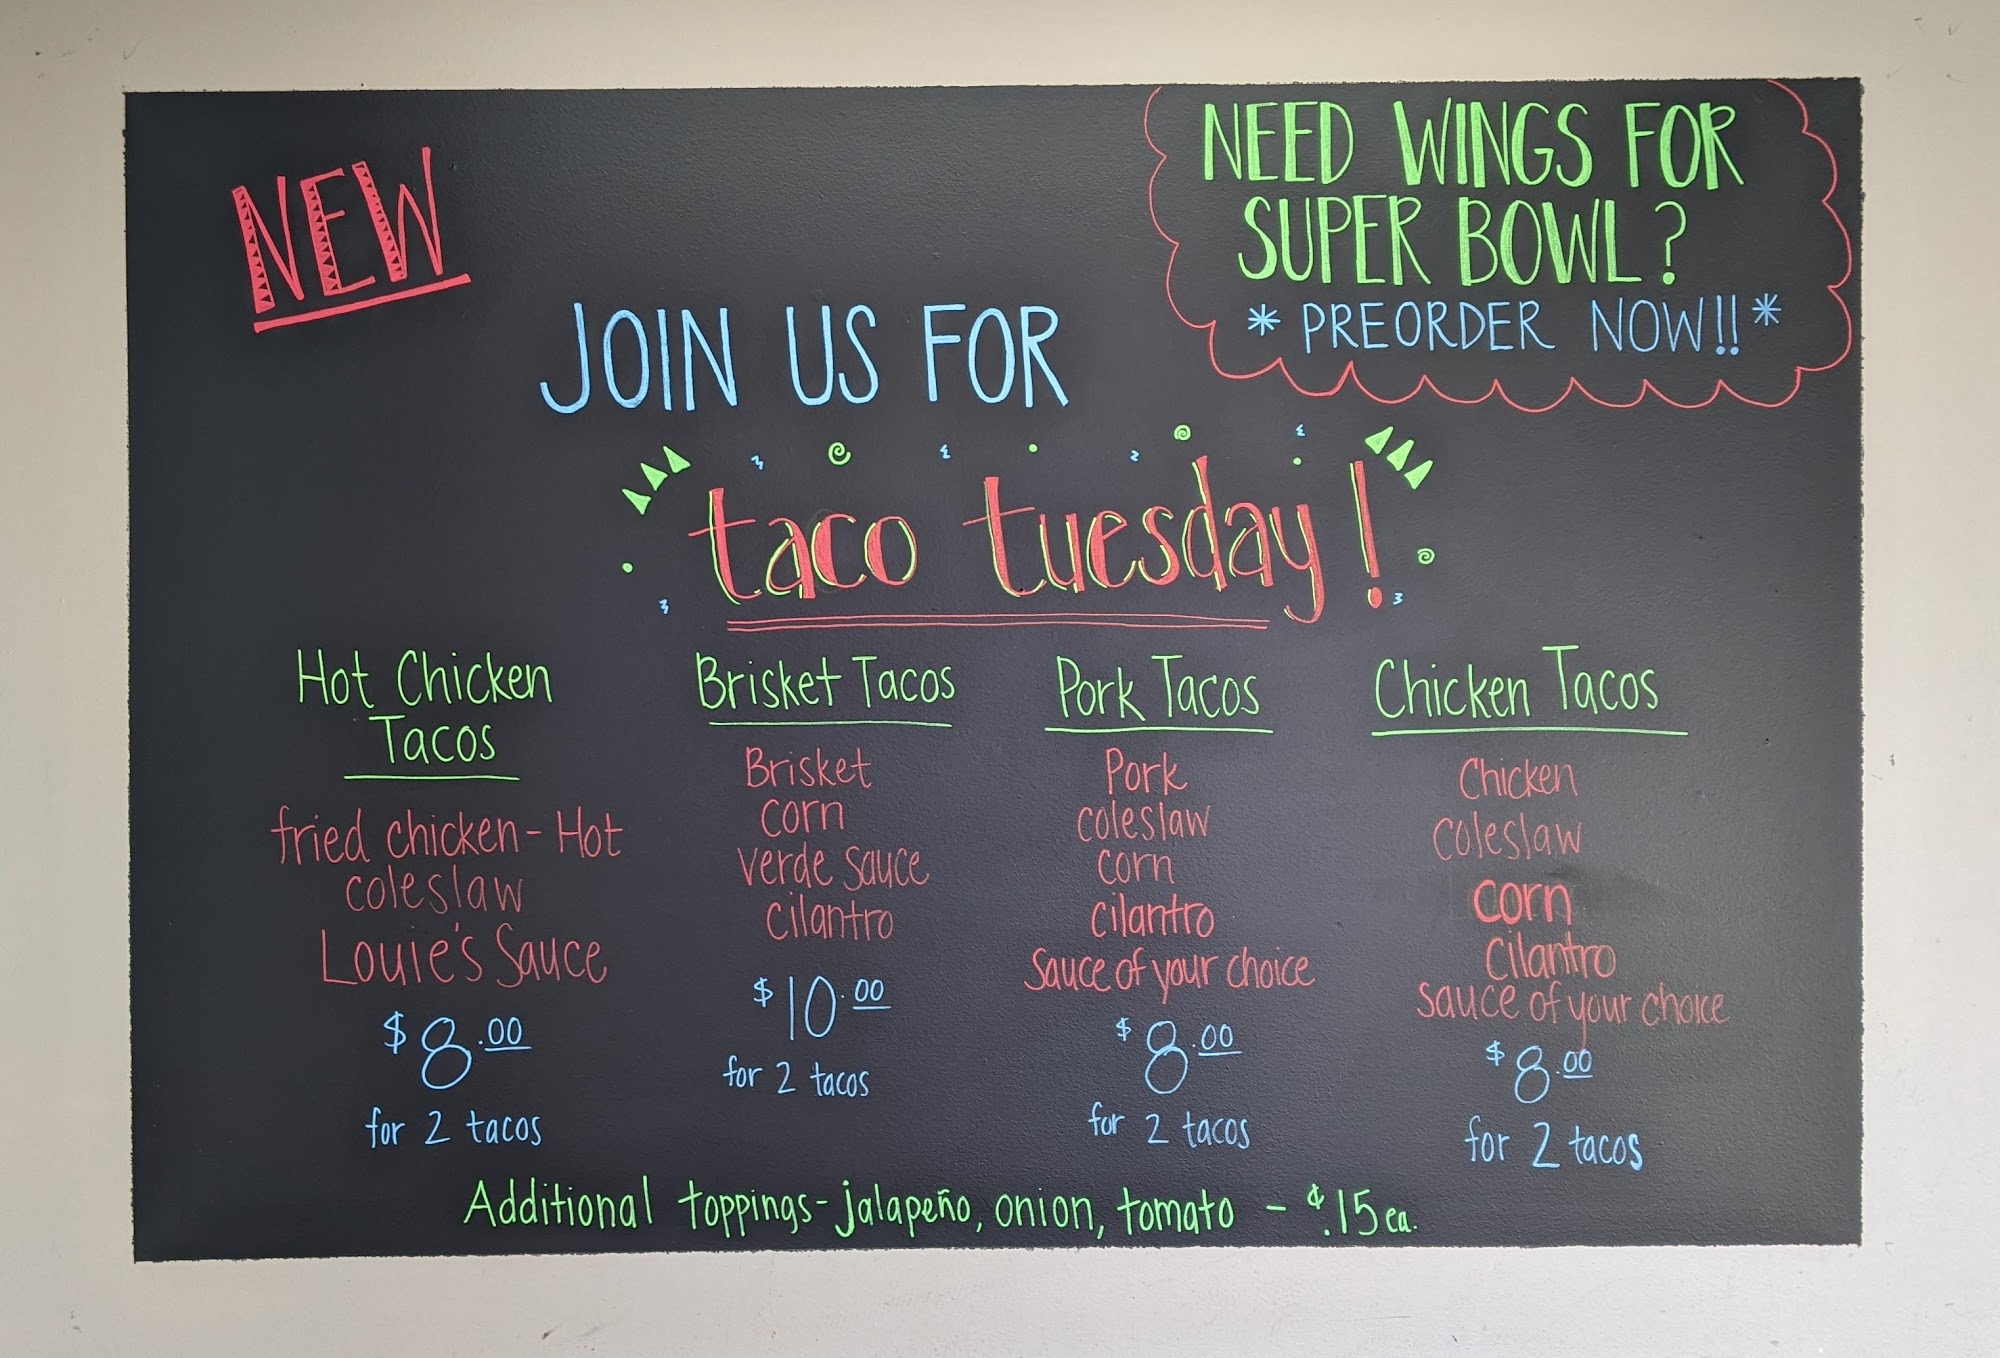 NEW
NEED WINGS FOR
SUPER BOWL?
* PREORDER NOW!! *
JOIN US FOR
taco tuesday!
Hot Chicken
Tacos
fried chicken - Hot
coleslaw
Louie's Sauce
$8.00
for 2 tacos
Brisket Tacos
Brisket
corn
verde sauce
cilantro
$10.00
for 2 tacos
Pork Tacos
Pork
coleslaw
corn
cilantro
Sauce of your choice
$8.00
for 2 tacos
Chicken Tacos
Chicken
coleslaw
corn
cilantro
sauce of your choice
$8.00
for 2 tacos
Additional toppings - jalapeño, onion, tomato - $.15 ea.